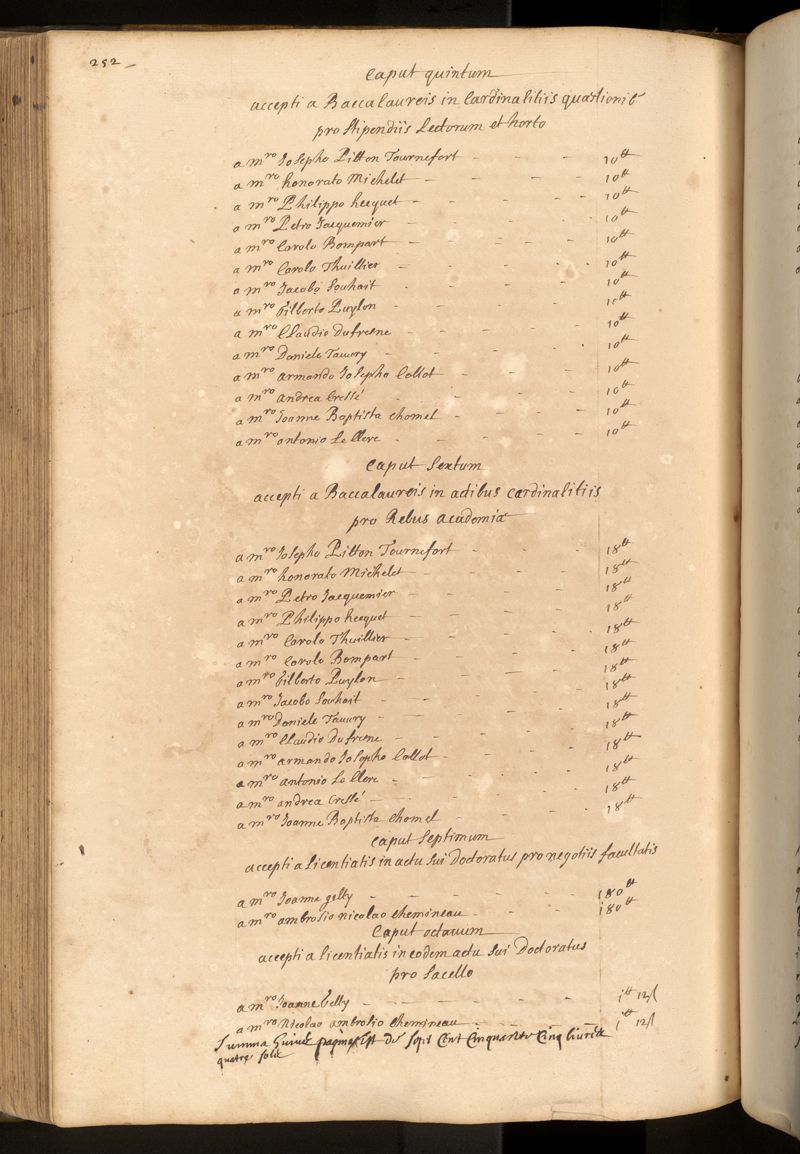 252
Caput quintum
accepti a Baccalaureis in Cardinalitiis quæstionib
pro stipendiis Lectorum et horto
a mro Josepho Pitton Tournefort - - - 10tt
a mro honorato Michelet - - - 10tt
a mro Philippo hecquet - - - 10tt
a mro Petro Jacquemier - - - 10tt
a mro Carolo Bompart - - - 10tt
a mro Carolo Thuillier - - - 10tt
a mro Jacobo Souhait - - - 10tt
a mro Gilberto Puylon - - - 10tt
a mro Claudio Dufresne - - - 10tt
a mro Daniele Tauury - - - 10tt
a mro armando Josepho Collot - - - 10tt
a mro andrea Cressé - - - 10tt
a mro Joanne Baptista Chomel - - - 10tt
a mro antonio Le Clerc - - - 10tt
Caput Sextum
accepti a Baccalaureis in actibus cardinalitiis
pro Rebus academiæ
a mro Josepho Pitton Tournefort - - - 18tt
a mro honorato Michelet - - - 18tt
a mro Petro Jacquemier - - - 18tt
a mro Philippo hecquet - - - 18tt
a mro Carolo Thuillier - - - 18tt
a mro Carolo Bompart - - - 18tt
a mro Gilberto Puylon - - - 18tt
a mro Jacobo Souhait - - - 18tt
a mro Daniele Tauury - - - 18tt
a mro Claudio Dufresne - - - 18tt
a mro armando Josepho Collot - - - 18tt
a mro antonio Le Clerc - - - 18tt
a mro andrea Cressé - - - 18tt
a mro Joanne Baptista Chomel - - - 18tt
Caput Septimum
accepti a licentiatis in actu sui Doctoratus pro negotiis facultatis
a mro Joanne gelly - - - 180tt
a mro ambrosio nicolao Chemineau - - - 180tt
Caput octavum
accepti a licentiatis in eodem actu sui Doctoratus
pro Sacello
a mro Joanne Gelly - - - 1tt 12s
a mro Nicolao ambrosio Chemineau - - - 1tt 12s
Summa paginæ Est de Sept Cent Cinquante Cinq liures
quatre sols